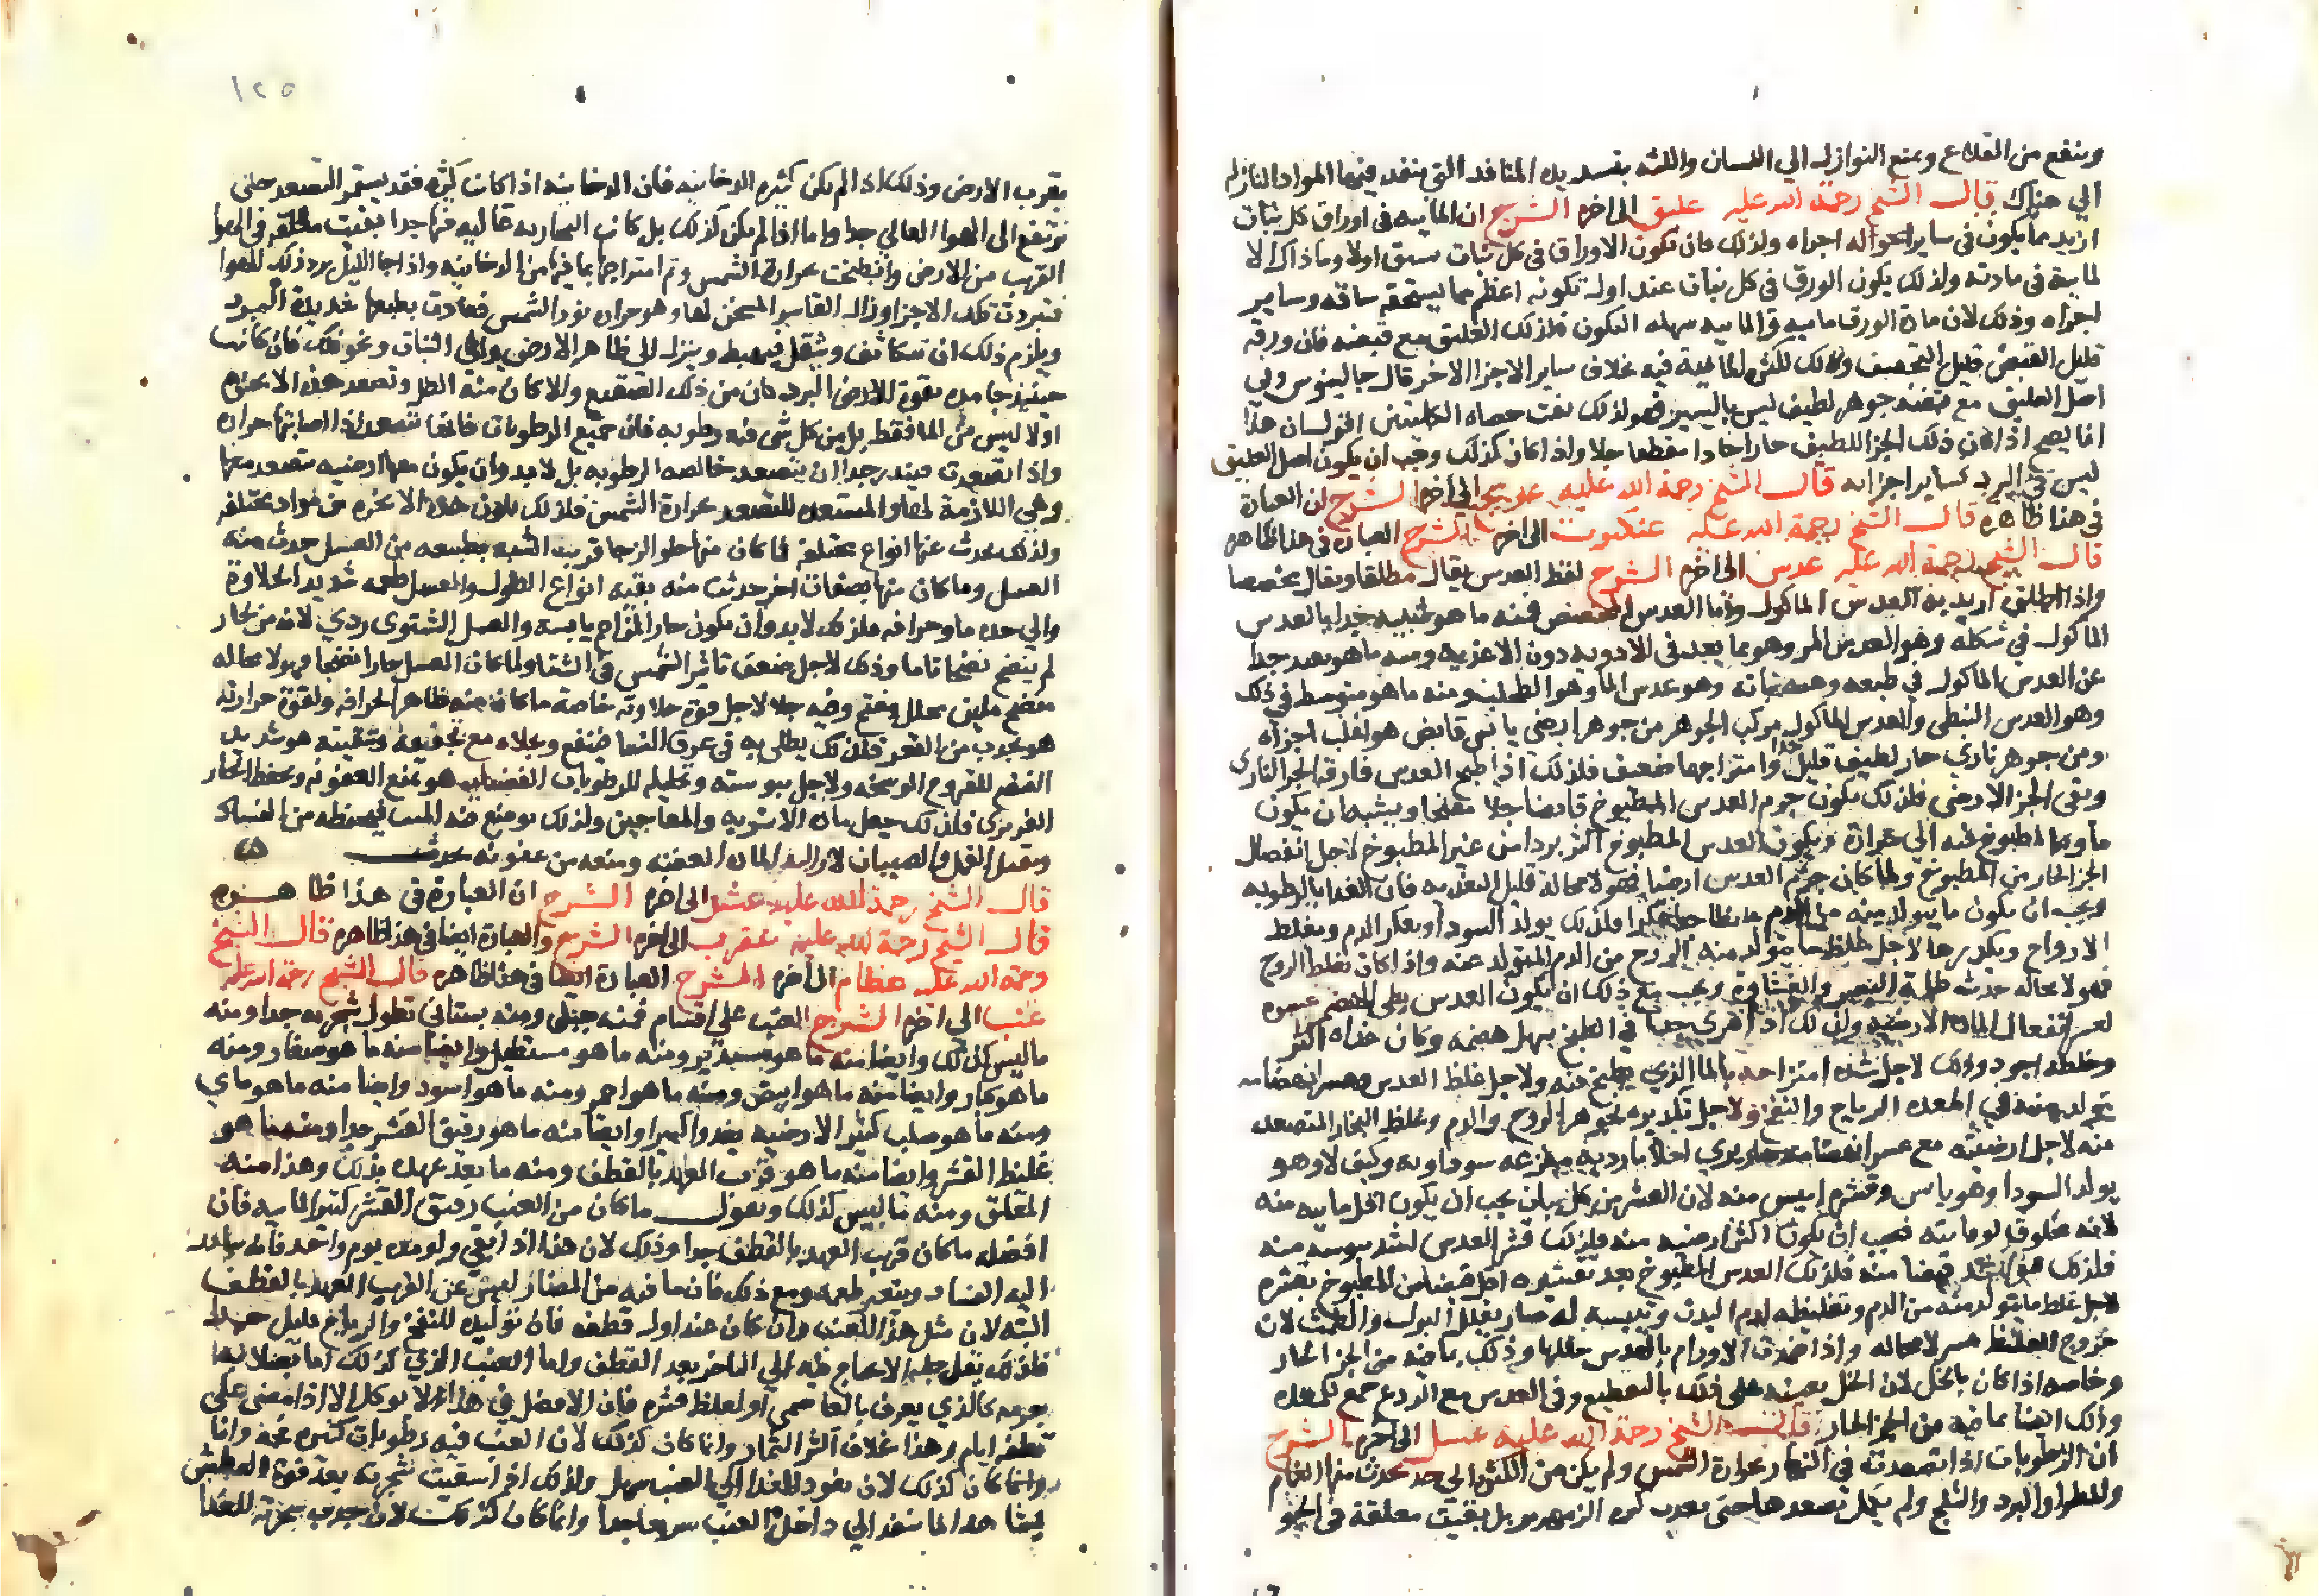 وينفع من القلاع ويمنع النوازل الي اللسان واللثه بتسديده المنافذ التي ينفد فيها المواد النازله
الي هناك قال الشيخ رحمة الله عليه عليق الى اخره الشرح ان المائيه في اوراق كل نبات
ازيد مما يكون في ساير اجزاه ولذلك فان تكون الاوراق في كل نبات يسبق اولا وما ذاك الا
لمايية في مادته ولذلك يكون الورق في كل نبات عند اول تكونه اعظم مما يستحقه ساقه وساير
اجزاه وذلك لان مادة الورق ماييه والماييه سهله التكون فلذلك العليق مع قبضه فان ورقه
قليل القبض قليل التجفيف وذلك لكثرة المائية فيه بخلاف ساير الاجزا الاخر قال جالينوس وفي
اصل العليق مع قبضه جوهر لطيف ليس باليسير فهو لذلك يفت حصاه الكليتين اقول ان هذا
انما يصح اذا كان ذلك الجز اللطيف حارا حادا مقطعا جلا واذا كان كذلك وجب ان يكون اصل العليق
ليس في البرد كساير اجزايه قال الشيخ رحمة الله عليه الى اخره الشرح ان العبارة
في هذا ظاهره قال الشيخ رحمة الله عليه عنكبوت الى اخره الشرح العباره في هذا ظاهره
قال الشيخ رحمة الله عليه عدس الى اخره الشرح لفظ العدس يقال مطلقا ويقال مخصصا
واذا اطلق اريد به العدس الماكول واما العدس المخصص فمنه ما هو شبيه جدا بالعدس
الماكول في شكله وهو العدس المر وهو مما يعد في الادويه دون الاغذيه ومنه ما هو بعيد جدا
عن العدس الماكول في طبعه وهيه نباته وهو عدس الما وهو الطحلب ومنه ما هو متوسط في ذلك
وهو العدس النبطي والعدس الماكول مركب الجوهر من جوهر ارضي يابس قابض هو اغلب اجزاه
ومن جوهر ناري حار لطيف قليل جدا وامتزاجهما ضعيف فلذلك اذا طبخ العدس فارقه الجز الناري
وبقى الجز الارضي فلذلك يكون جرم العدس المطبوخ قابضا ويشبه ان يكون
ماوها المطبوخ فيه الي حرارة ويكون العدس المطبوخ اكثر بردا من غير المطبوخ لاجل انفصال
الجز الحار من المطبوخ ولما كان جرم العدس ارضيا فهو لا محالة قليل التغذيه فان الغذا بالرطوبه
ويجب ان يكون ما يتولد منه من الدم غليظا عكرا فلذلك يولد السودا ويعكر الدم ويغلظ
الارواح ويكدرها لاجل غلظ ما يتولد منه الروح من الدم المتولد عنه واذا كان تغلظ الروح
فهو لا محاله حدث ظلمة البصر والغشاوة ويجب مع ذلك ان يكون العدس بطي الهضم عسره
لعسر انفعال الماده الارضيه ولذلك اذا اهري جيدا في الطبخ سهل هضمه وكان غذاه اكثر
وخلطه اجود وذلك لاجل شده امتزاجه بالما الذي يطبخ فيه ولاجل غلظ العدس وعسر انهضامه
تتولد عنه في المعده الرياح والنفخ ولاجل تكديره لجوهر الروح والدم وغلظ البخار المتصعد
منه لاجل ارضيته مع عسر انهضامه يري احلاما رديه مفزعه سوداويه وكيف لا وهو
يولد السودا وهو يابس وقشره ايبس منه لان القشر من كل نبات يجب ان يكون اقل ماييه منه
لانه مخلوق لوقايته فيجب ان يكون اكثر ارضيه منه فلذلك قشر العدس اشد يبوسه منه
فلذلك هو اشد قبضا منه فلذلك العدس المطبوخ بعد تقشيره اقل قبضا من المطبوخ بقشره
لاجل غلظ ما يتولد منه من الدم وتغليظه لدم البدن وتيبيسه له صار يقلل البول والطمث لان
خروج الغليظ عسر لا محاله واذا ضمدت الاورام بالعدس حللها وذلك بما فيه من الجز الحار
وخاصه اذا كان بالخل لان الخل يعينه على ذلك بالتقطيع وفي العدس مع الردع جمع للمده
وذلك ايضا بما فيه من الجز الحار قال الشيخ رحمة الله عليه عسل الى اخره الشرح
ان الرطوبات اذا تصعدت في النهار بحرارة الشمس ولم يكن من الكثره الى حد يحدث منها الغيم
والمطر والبرد والثلج ولم يكمل تصعدها حتى تقرب كره الزمهرير بل بقيت معلقة في الجو
١٢٥
بقرب الارض وذلك اذا لم يكن كثيره الدخانيه فان الدخانيه اذا كانت كثيره فقد يستمر التصعد حتى
ترتفع الى الهوا العالي جدا واما اذا لم يكن كذلك بل كانت البخاريه غالبه فيها جدا بقيت معلقه في الهوا
القريب من الارض وانطبخت بحرارة الشمس وتم امتزاجها بما فيها من الدخانيه واذا جا الليل برد ذلك الهوا
فتبردت تلك الاجزا وزال القاسر المسخن لها وهو حراره نور الشمس فعادت بطبعها شديدة البرد
ويلزم ذلك ان تتكاثف وتثقل فيهبط وينزل الي ظاهر الارض والى النبات ونحو ذلك فان كانت
حينيذ جامده بقوة البرد كان من ذلك الصقيع والا كان منه الطل وتصعد هذه الابخره
اولا ليس من الما فقط بل من كل شي فيه رطوبه فان جميع الرطوبات فانها تتصعد اذا اصابتها حراره
واذا تصعدت فيندر جدا ان يتصعد خالصه الرطوبه بل لا بد وان يكون معها ارضيه يتصعد معها
وهي اللازمة لها والمستعده للتصعد بحرارة الشمس فلذلك تكون هذه الابخره من مواد مختلفه
ولذلك يحدث عنها انواع مختلفه فما كان منها حلوا لزجا قريب الشبه بطبعه من العسل حدث منه
العسل وما كان منها بصفات اخر حدثت منه بقيه انواع الطلول والعسل طعمه شديد الحلاوة
والي حده ما وحرافه فلذلك لا بد وان يكون حار المزاج يابسه والعسل الشتوي ردي لانه من بخار
لم ينضج نضجا تاما وذلك لاجل ضعف تاثير الشمس في الشتا ولما كان العسل حارا فهو لا محاله
منضج ملين محلل مفتح وفيه جلا لاجل قوة حلاوته خاصة ما كان منه ظاهر الحرافه ولقوة حرارته
هو يجذب من القعر فلذلك يطلى به في عرق النسا فينفع وبجلاه مع تجفيفه وتنقيته هو شديد
النفع للقروح الوسخه ولاجل يبوسته وتحليله للرطوبات الفضليه هو يمنع العفونه ويحفظ الحار
الغريزي فلذلك جعل مادة الاشربه والمعاجين ولذلك يوضع فيه الميت فيحفظه من الفساد
ويقتل القمل والصيبان لازالته الماده العفنه ومنعه من عفونه تحدث
قال الشيخ رحمة الله عليه عشر الى اخره الشرح ان العبارة في هذا ظاهره
قال الشيخ رحمة الله عليه عقرب الى اخره الشرح والعبارة ايضا في هذا ظاهره قال الشيخ
رحمة الله عليه عظام الى اخره الشرح العبارة ايضا في هذا ظاهره قال الشيخ رحمة الله عليه
عنب الى اخره الشرح العنب على اقسام فمنه جبلي ومنه بستاني تطول شجرته جدا ومنه
ما ليس كذلك وايضا منه ما هو مستدير ومنه ما هو مستطيل وايضا منه ما هو صغار ومنه
ما هو كبار وايضا منه ما هو ابيض ومنه ما هو احمر ومنه ما هو اسود وايضا منه ما هو مائي
ومنه ما هو صلب كثير الارضيه يغدوا كثيرا وايضا منه ما هو رقيق القشر جدا ومنه ما هو
غليظ القشر وايضا منه ما هو قريب العهد بالقطف ومنه ما بعد عهده بذلك وهذا منه
المعلق ومنه ما ليس كذلك ونقول ما كان من العنب رقيق القشر كثير المائيه فان
افضله ما كان قريب العهد بالقطف جدا وذلك لان هذا اذا بقي ولو مده يوم واحد فانه
اليه الفساد ويتغير طعمه ومع ذلك فان ما فيه من المضار ليس عن القريب العهد بالقطف
البته لان مثل هذا العنب وان كان عند اول قطفه فان توليده للنفخ والرياح قليل جدا
فلذلك يقل جدا الاحتياج فيه الي التاخر بعد القطف واما العنب الذي كذلك اما لصلابة
جرمه كالذي يعرف بالعاصمي او لغلظ قشره فان الافضل في هذا ان لا يوكل الا اذا مضى على
قطفه ايام وهذا بخلاف اكثر الثمار وانما كان كذلك لان العنب فيه رطوبات كثيره فجه وانما
وانما كان كذلك لان نفوذ الغذا الي العنب سهل ولذلك اذا سقيت شجرته بعد قوة العطش
فان هذا الما ينفذ الي داخل العنب سريعا جدا وانما كان كذلك لان جذب شجرته للغذا